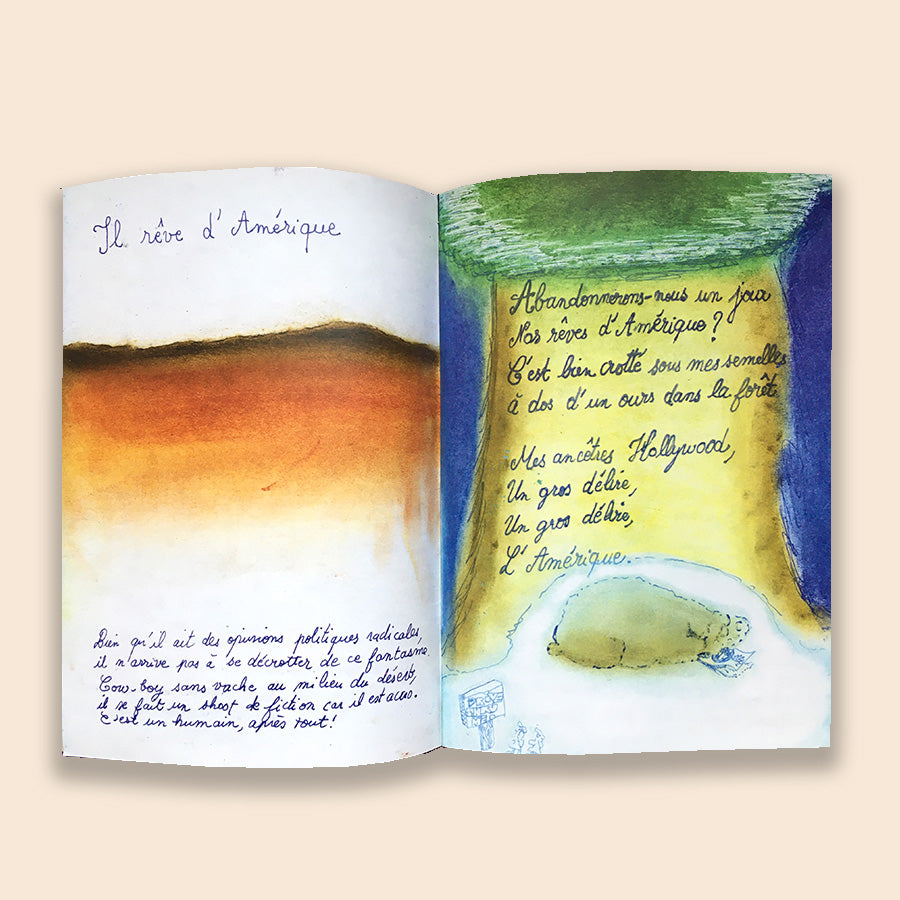 Il rêve d'Amérique
Bien qu'il ait des opinions politiques radicales,
il n'arrive pas à se décrotter de ce fantasme.
Cow-boy sans vache au milieu du désert,
il se fait un shoot de fiction car il est accro.
C'est un humain, après tout!
Abandonnerons-nous un jour
Nos rêves d'Amérique?
C'est bien crotté sous mes semelles
à dos d'un ours dans la forêt
Mes ancêtres Hollywood,
Un gros délire,
Un gros délire,
L'Amérique.